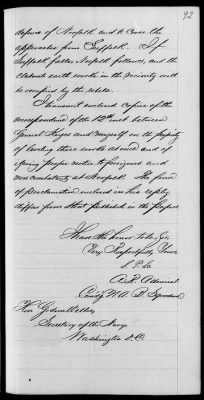 92
defence of Norfolk and to cover the
approaches from Suffolk. If
Suffolk falls Norfolk follows, and the
elaborate earth works in the vicinity will
be occupied by the rebels.
I transmit enclosed copies of the
correspondence of the 12th inst between
General Keyes and myself on the propriety
of leaving these works as and of
issuing proper notice to foreigners and
non combatants at Norfolk. The form
of proclamation enclosed in his reply
differs from that published in the papers
I have the honor to be, Sir,
Very Respectfully Yours
S. P. Lee
A. R. Admiral
Comdg N. A. B. Squadron
Hon Gideon Welles
Secretary of the Navy
Washington D.C.